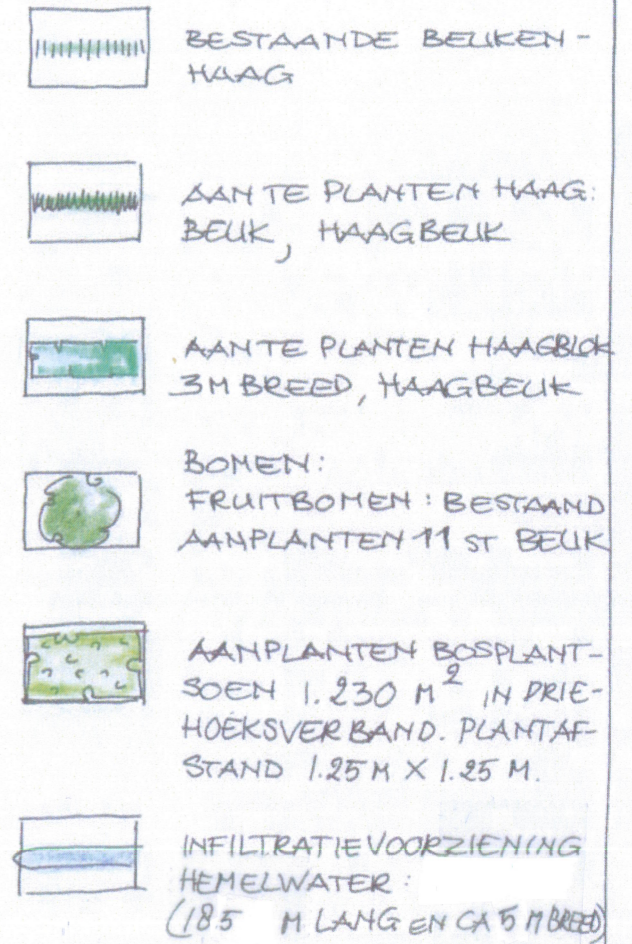 BESTAANDE BEUKEN-
HAAG
AAN TE PLANTEN HAAG:
BEUK, HAAGBEUK
AAN TE PLANTEN HAAGBLOK
3M BREED, HAAGBEUK
BOMEN:
FRUITBOMEN: BESTAAND
AANPLANTEN 11 ST BEUK
AANPLANTEN BOSPLANT-
SOEN 1.230 M² IN DRIE-
HOEKSVERBAND. PLANTAF-
STAND 1.25 M X 1.25 M.
INFILTRATIEVOORZIENING
HEMELWATER:
(185 M LANG EN CA 5 M BREED)